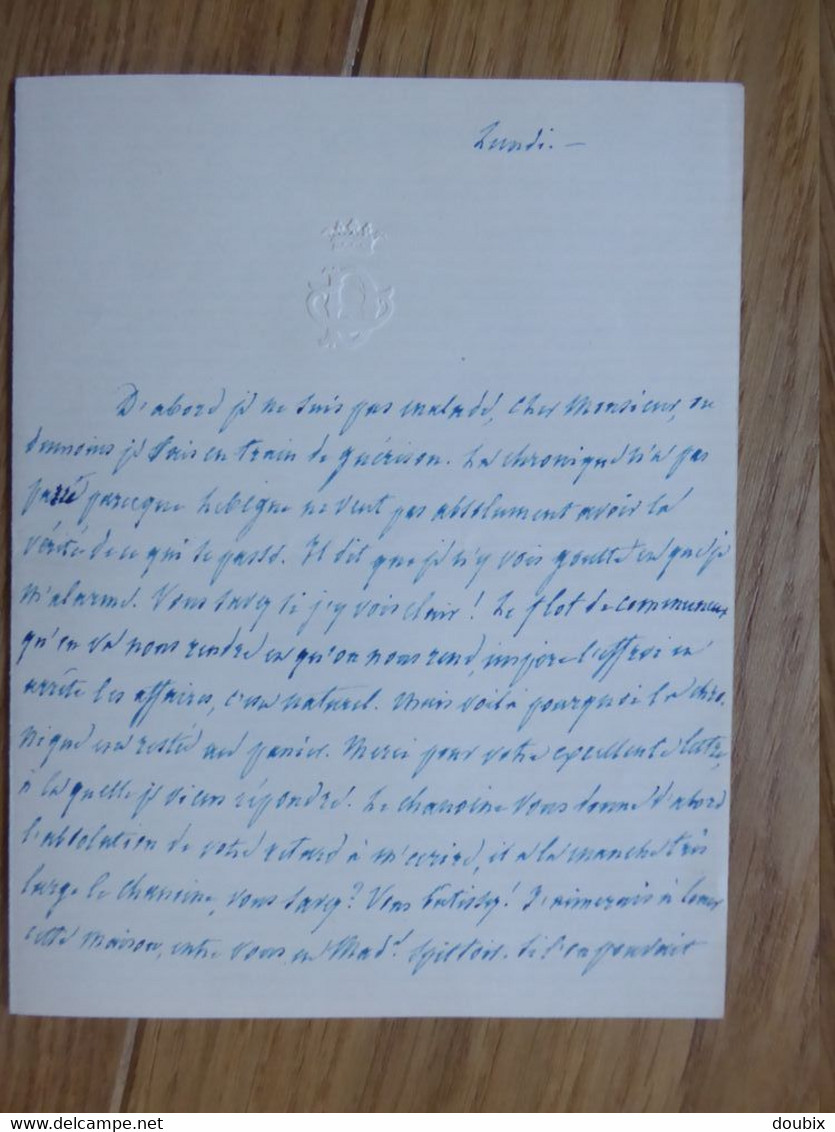 Lundi. —
D'abord je ne suis pas malade, cher Monsieur, ou
dumoins je suis en train de guérison. La chronique n'a pas
passé parceque Lebègue ne veut pas absolument avoir la
vérité de ce qui se passe. Il dit que je n'y vois goutte et que je
m'alarme. Vous savez si j'y vois clair ! Le flot de communeux
qu'on va nous rendre et qu'on nous rend, inspire l'effroi et
arrête les affaires, c'est naturel. Mais voilà pourquoi la chro-
nique est restée au panier. Merci pour votre excellente lettre,
à laquelle je viens répondre. Le chanoine vous donne d'abord
l'absolution de votre retard à m'écrire, il a la manche très
large le chanoine, vous savez ? Vous bâtissez ! J'aimerais à louer
cette maison, entre vous et Mad.e Si l'on pouvait
delcampe.net
doubix